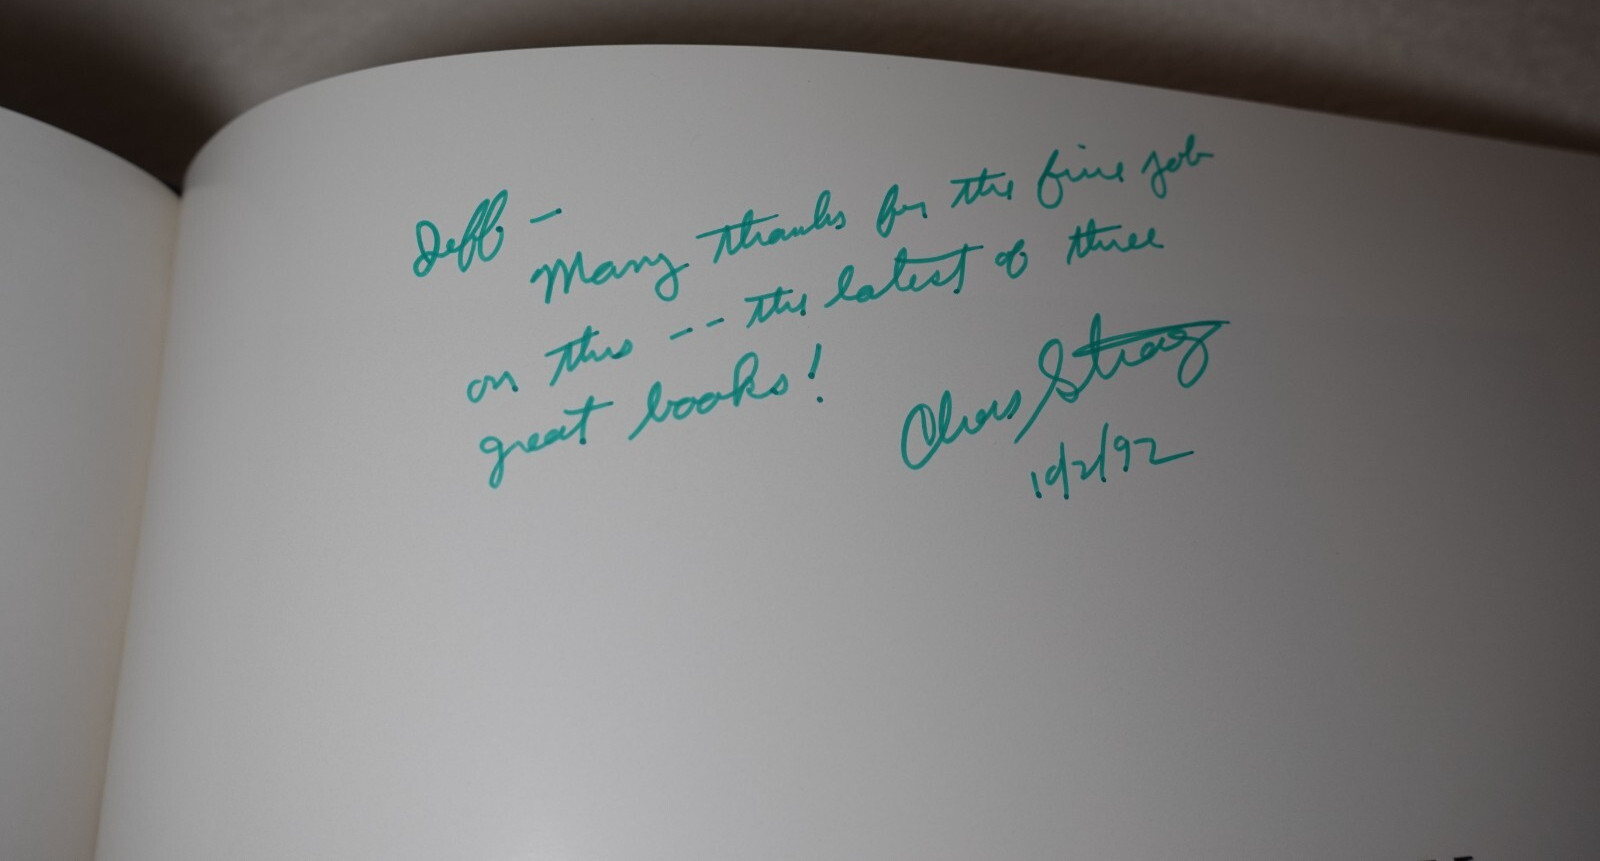 Jeff –
Many thanks for the fine job
on this -- the latest of three
great books!
Chas
10/2/92